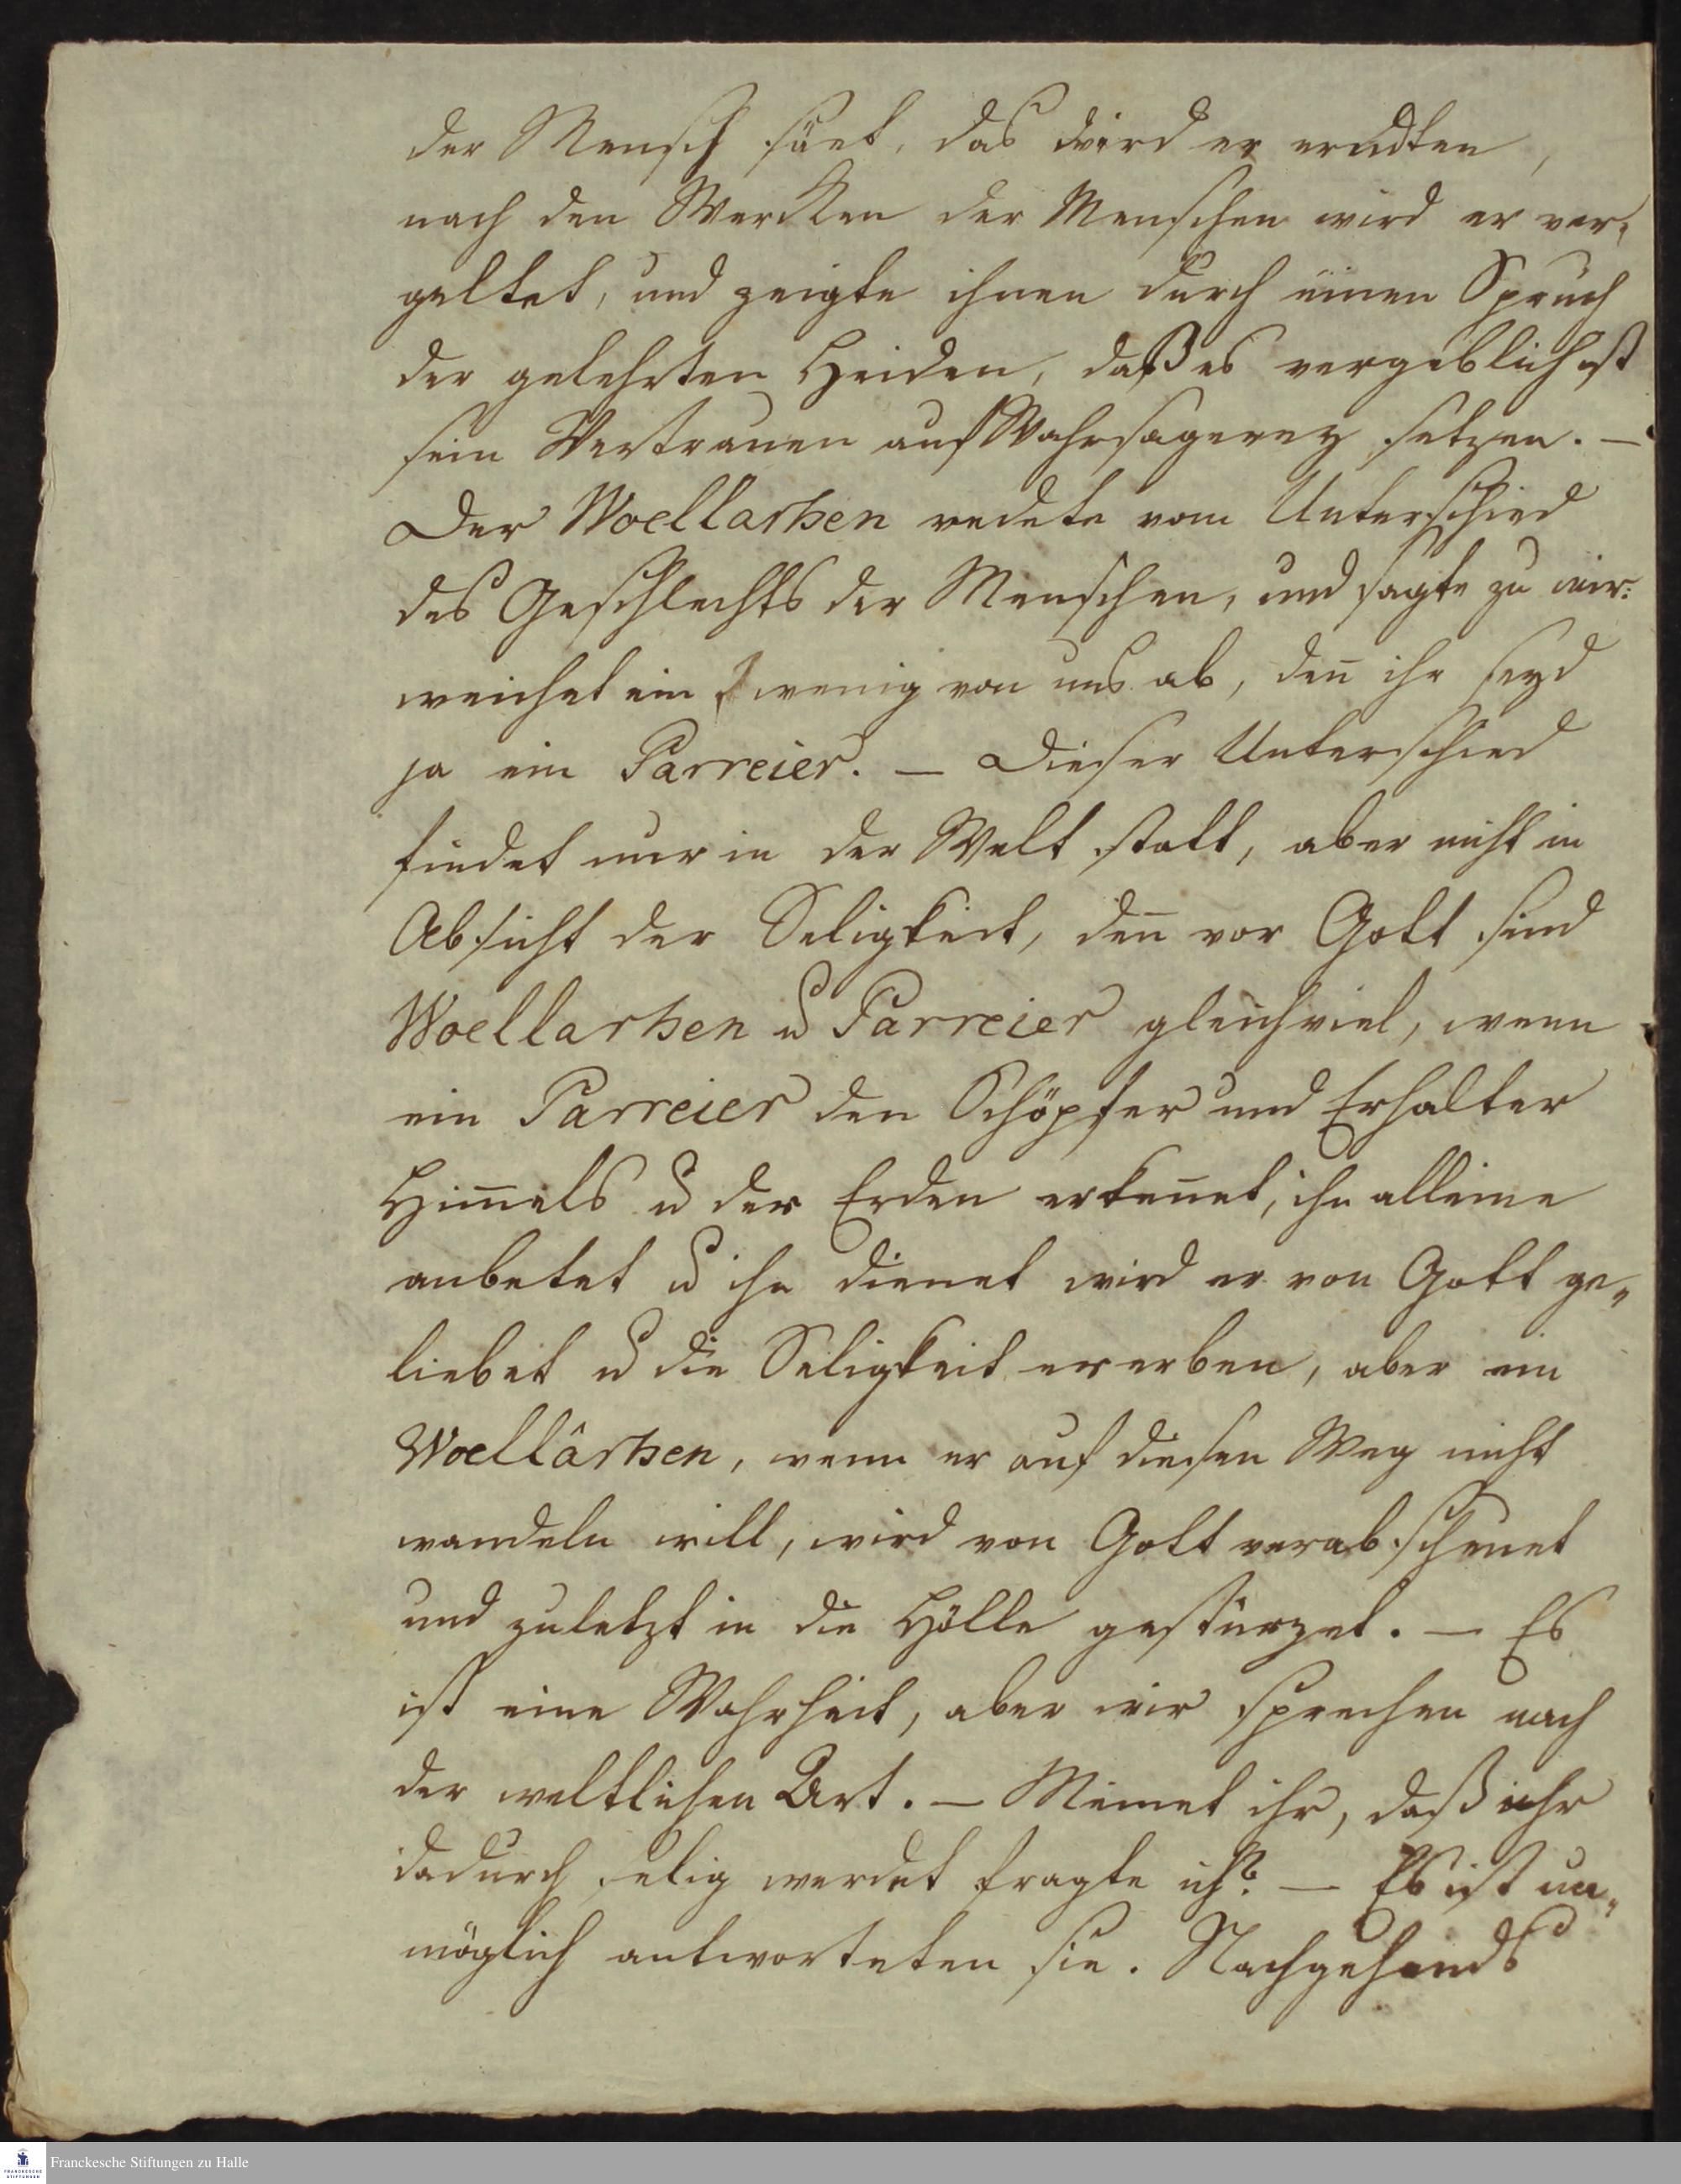 der Mensch säet, das wird er erndten,
nach den Wercken der Menschen wird er ver¬
geltet, und zeigte ihnen durch einen Spruch
der gelehrten Heiden, daß es vergeblich ist
sein Vertrauen auf Wahrsagerey setzen. —
Der Woellarhen redete vom Unterschied
des Geschlechts der Menschen, und sagte zu mir:
weichet ein wenig von uns ab, den̄ ihr seyd
ja ein Parreier. — Dieser Unterschied
findet nur in der Welt statt, aber nicht in
Absicht der Seligkeit, den̄ vor Gott sind
Woellarhen u Parreier gleichviel, wenn
ein Parreier den Schöpfer und Erhalter
Him̄els u der Erden erken̄et, ihn alleine
anbetet u ihn dienet wird er von Gott ge„
liebet u die Seligkeit ererben, aber ein
Woellârhen, wenn er auf diesen Weg nicht
wandeln will, wird von Gott verabscheuet
und zuletzt in die Hölle gestürzet. — Es
ist eine Wahrheit, aber wir sprechen nach
der weltlichen Art. — Meinet ihr, daß ihr
dadurch selig werdet fragte ich? — Es ist un„
möglich antworteten sie. Nachgehends
Franckesche Stiftungen zu Halle